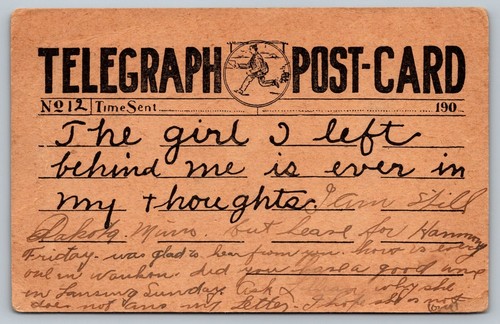 TELEGRAPH POST-CARD
No 12 Time Sent 190
The girl I left
behind me is ever in
my thoughts. I am still
Dakota, Minn. but leave for Harmony
Friday. was glad to hear from you. how is every
one in Waukon. did you have a good time
in Lansing Sunday. Ask why she
does not ans. my letter. I hope she is not
(over)